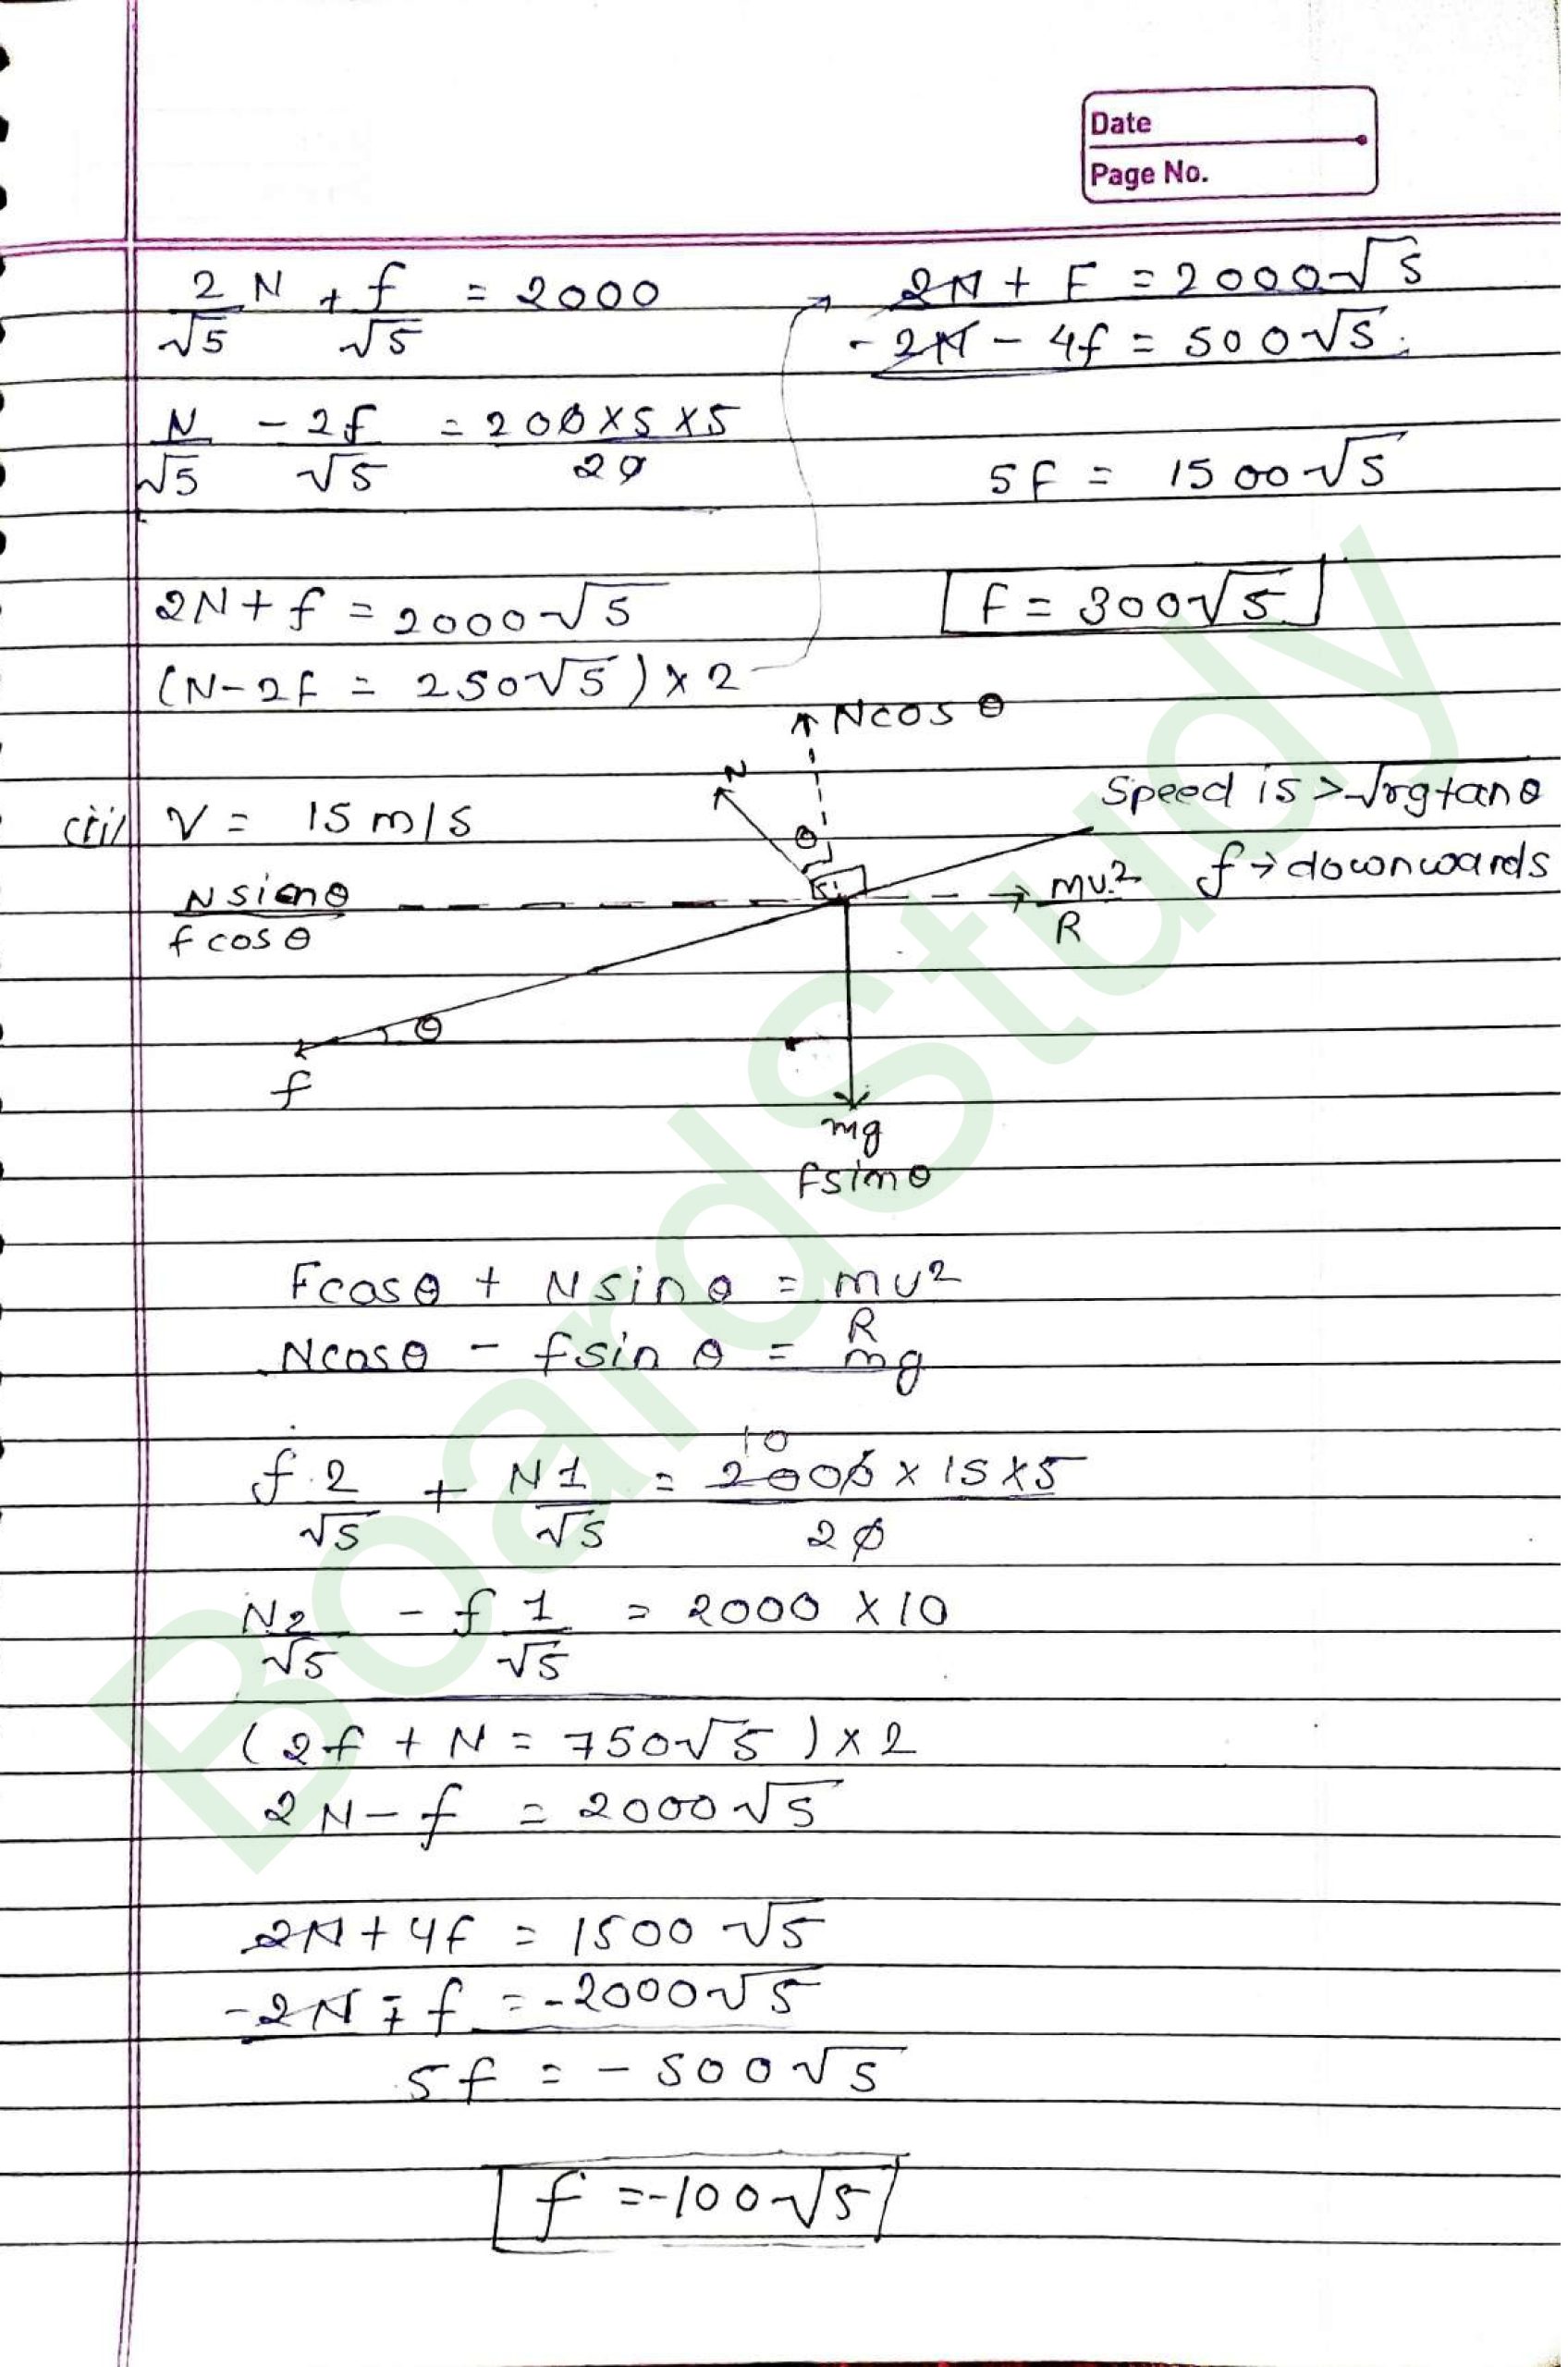 Date
Page No.
2/√5 N + f/√5 = 2000
N/√5 - 2f/√5 = 200×5×5/20
2N + f = 2000√5
(N-2f = 250√5)×2
→ 2N + F = 2000√5
-2N - 4f = 500√5
5f = 1500√5
f = 300√5
(iii) V = 15 m/s
Ncos θ
N
θ
Speed is > √rgtanθ
f → downwards
Nsinθ
f cos θ
mv²/R
θ
f
mg
fsinθ
Fcosθ + Nsinθ = mv²/R
Ncosθ - fsin θ = mg
f 2/√5 + N 1/√5 = 2000 × 15×5/20
10
N 2/√5 - f 1/√5 = 2000 × 10
(2f + N = 750√5)×2
2N - f = 2000√5
2N + 4f = 1500√5
-2N ∓ f = -2000√5
5f = - 500√5
f = -100√5
BoardStudy